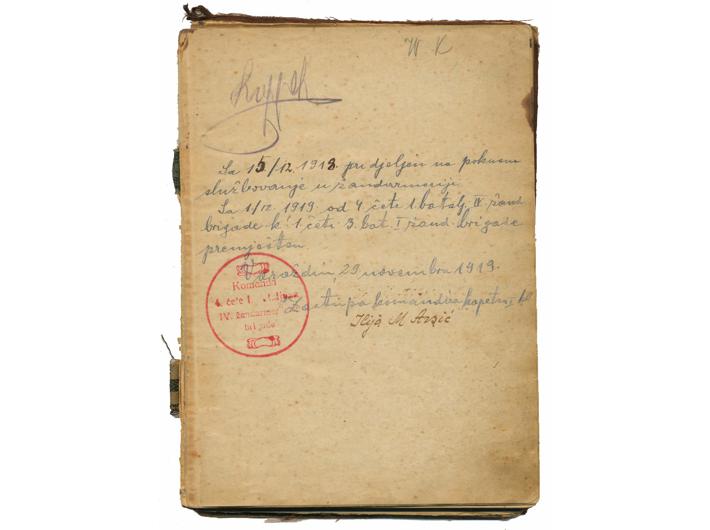 W K
Sa 15/12 1918. pridjeljen na pokusno
službovanje u žandarmeriji.
Sa 1/12 1919 od 4 čete 1. batalj. IV žand
brigade k 1. četi 3. bat. I žand. brigade
premješten.
Varaždin, 29 novembra 1919.
Komanda
4. čete 1
IV. žandarmer
brigade
Zastupa komandira kapetan I kl
Ilija M Arsić